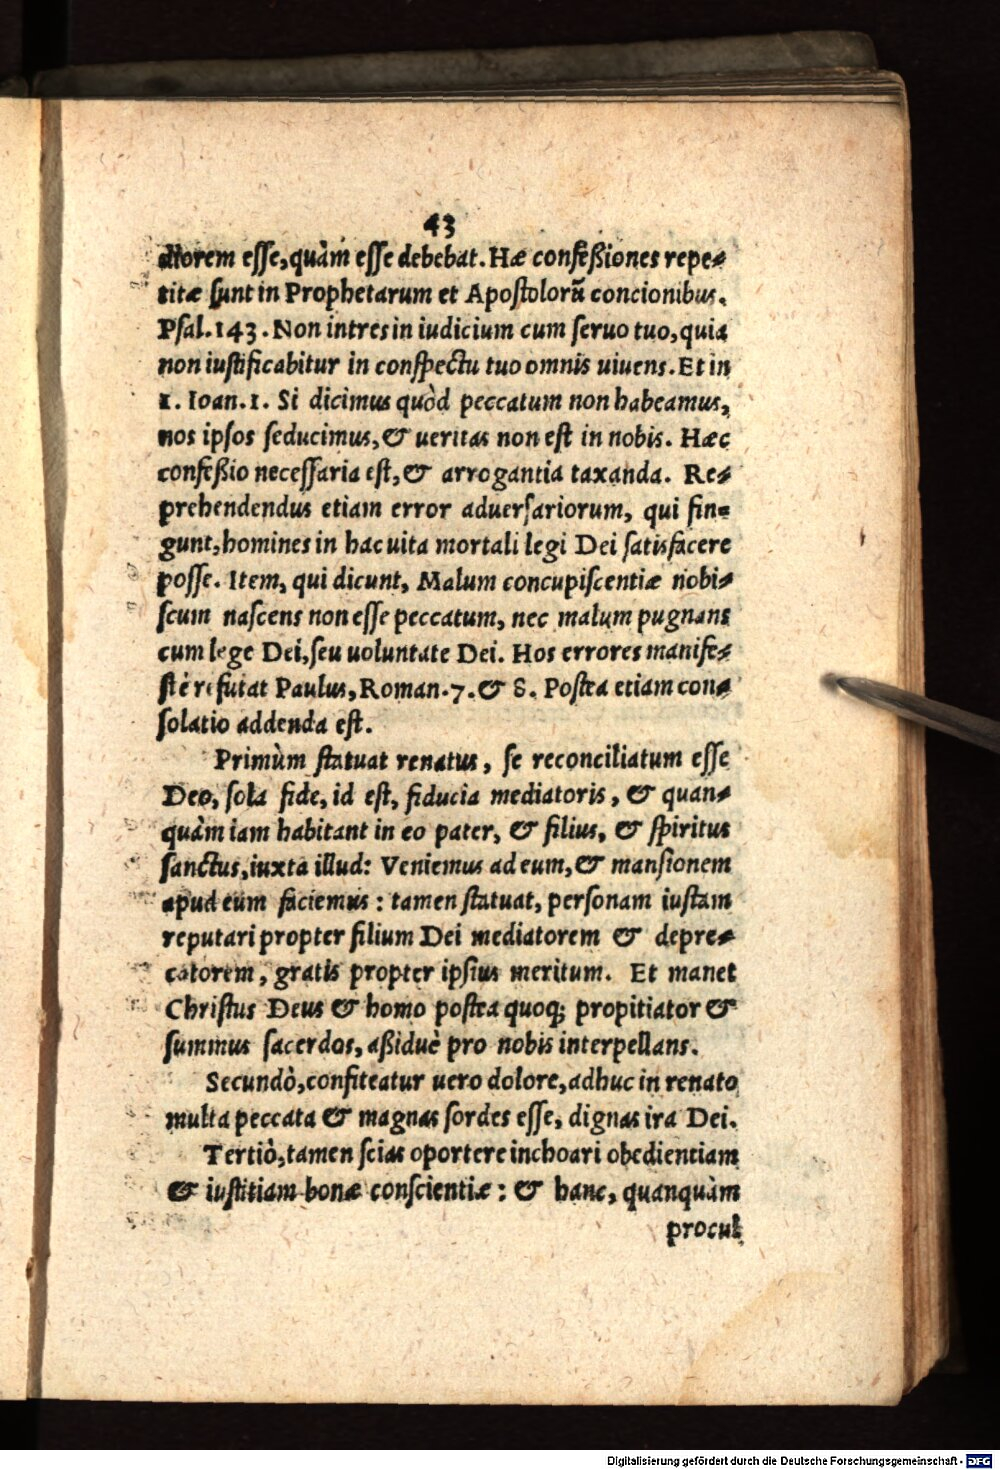 43
ctiorem esse, quàm esse debebat. Hæ confeßiones repe-
titæ sunt in Prophetarum et Apostolorũ concionibus.
Psal. 143. Non intres in iudicium cum seruo tuo, quia
non iustificabitur in conspectu tuo omnis uiuens. Et in
1. Ioan. 1. Si dicimus quòd peccatum non habeamus,
nos ipsos seducimus, & ueritas non est in nobis. Hæc
confeßio necessaria est, & arrogantia taxanda. Re-
prehendendus etiam error aduersariorum, qui fin-
gunt, homines in hac uita mortali legi Dei satisfacere
posse. Item, qui dicunt, Malum concupiscentiæ nobi-
scum nascens non esse peccatum, nec malum pugnans
cum lege Dei, seu uoluntate Dei. Hos errores manife-
stè refutat Paulus, Roman. 7. & 8. Postea etiam con-
solatio addenda est.
Primùm statuat renatus, se reconciliatum esse
Deo, sola fide, id est, fiducia mediatoris, & quan-
quàm iam habitant in eo pater, & filius, & spiritus
sanctus, iuxta illud: Veniemus ad eum, & mansionem
apud eum faciemus: tamen statuat, personam iustam
reputari propter filium Dei mediatorem & depre-
catorem, gratis propter ipsius meritum. Et manet
Christus Deus & homo postea quoq; propitiator &
summus sacerdos, aßiduè pro nobis interpellans.
Secundò, confiteatur uero dolore, adhuc in renato
multa peccata & magnas sordes esse, dignas ira Dei.
Tertiò, tamen scias oportere inchoari obedientiam
& iustitiam bonæ conscientiæ: & hanc, quanquàm
procul
Digitalisierung gefördert durch die Deutsche Forschungsgemeinschaft - DFG